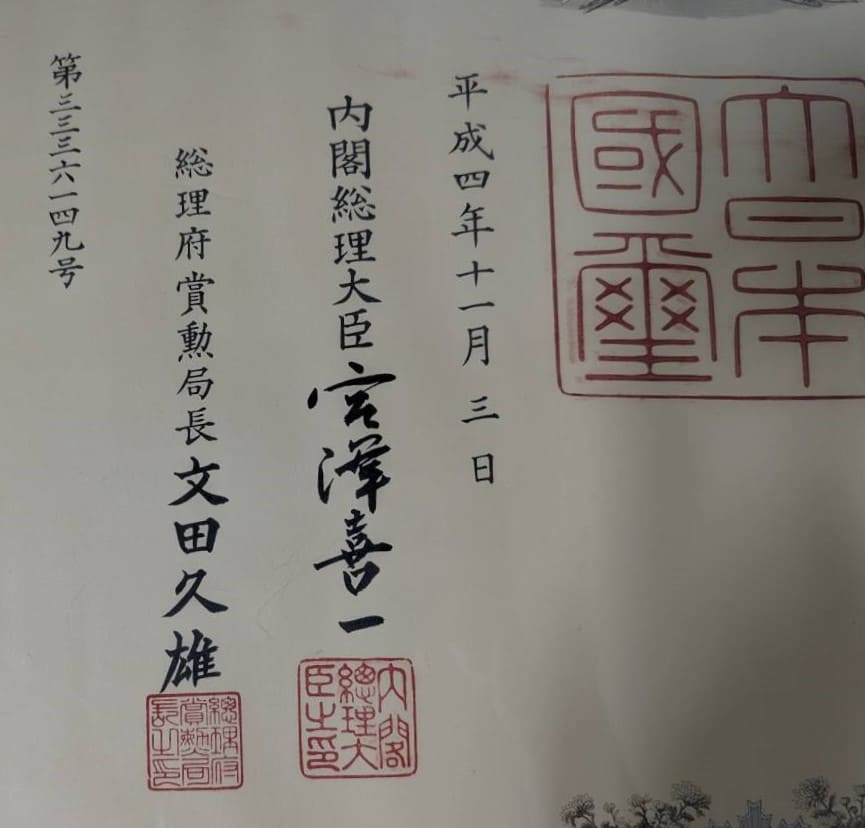 大日本
國璽
平成四年十一月三日
内閣総理大臣 宮澤喜一
内閣
總理大
臣之印
総理府賞勲局長 文田久雄
總理府
賞勲局
長之印
第三三三六一四九号